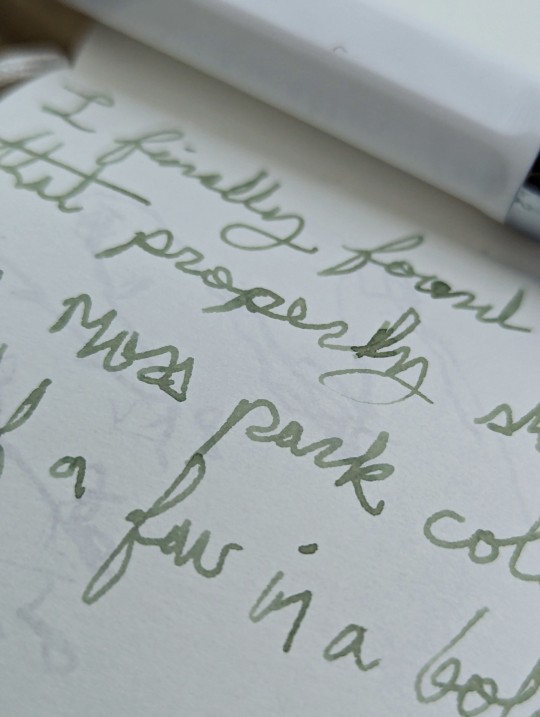 I finally found
that properly
Moss park
a few in a